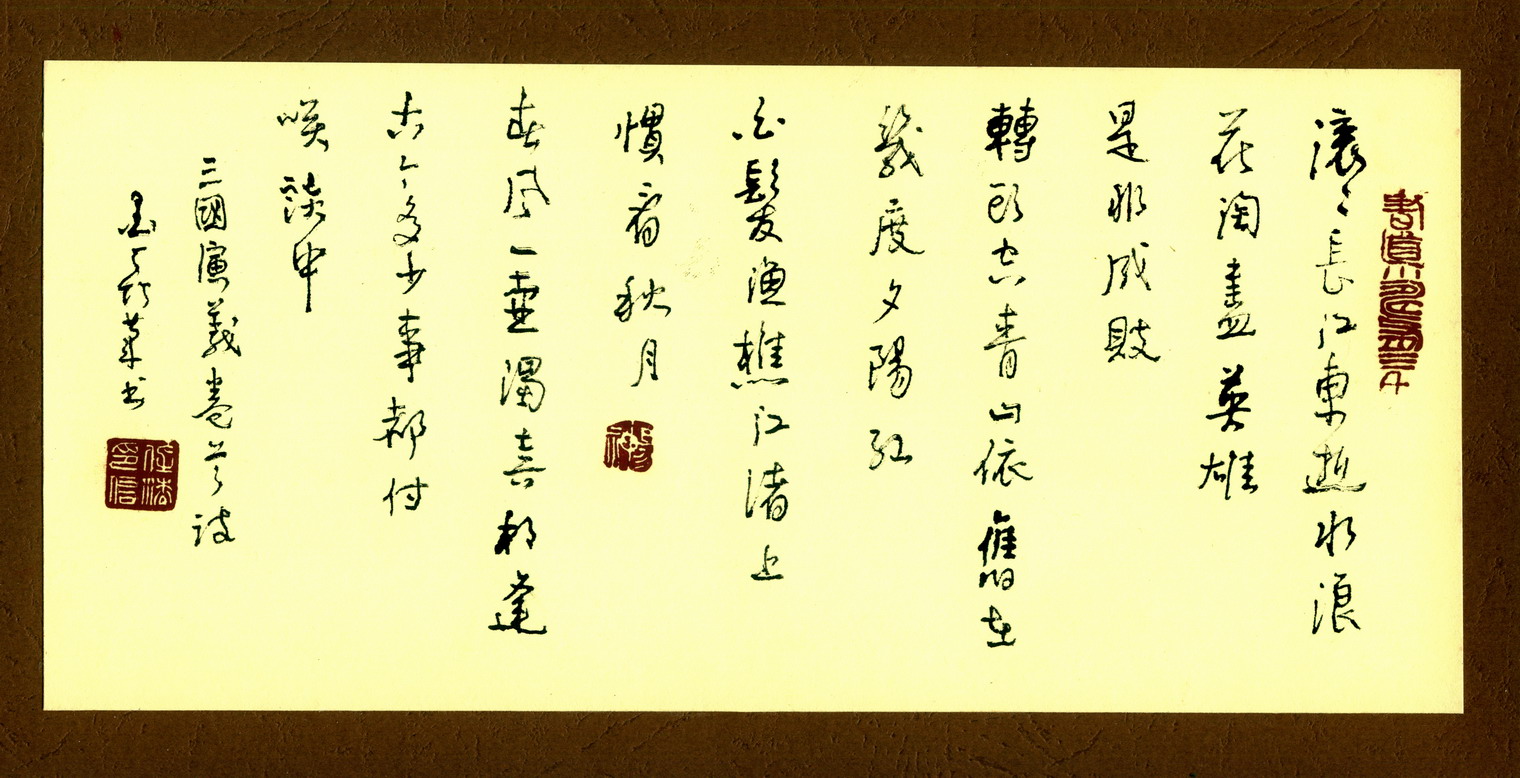 滾々長江東逝水浪
花淘盡英雄
是非成敗
轉頭空青山依舊在
幾度夕陽紅
白髮漁樵江渚上
慣看秋月
春風一壺濁喜相逢
古今多少事都付
咲談中
三國演義卷首
书
任法印信